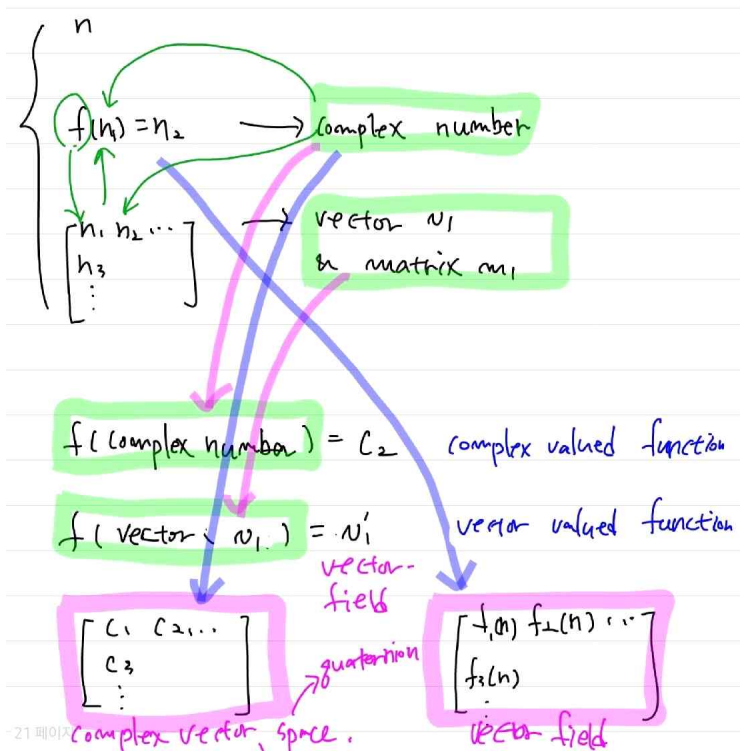 n
f(n₁) = n₂ → complex number
[n₁ n₂ ... → vector v₁
n₃ & matrix m₁
⋮]
f(complex number) = C₂ complex valued function
f(vector v₁) = v₁' vector valued function
vector-
field
[C₁ C₂,... [f₁(n) f₂(n) ...
quaternion
C₃ f₃(n)
⋮] ⋮]
21 페이지 complex vector space. vector field